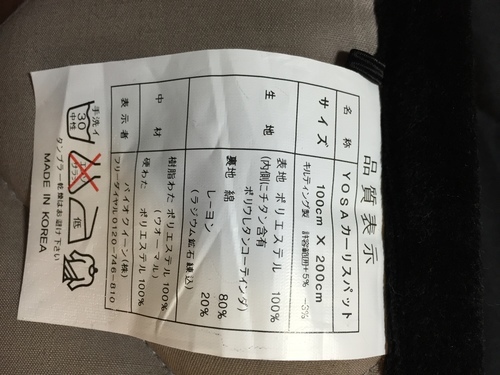 品質表示
名称 YOSAカーリスパット
サイズ 100cm X 200cm
キルティング製 許容範囲+5% -3%
生地 表地 ポリエステル 100%
(内側にチタン含有
ポリウレタンコーティング)
裏地 綿 80%
レーヨン 20%
(ラジウム鉱石練込)
中材 樹脂わた ポリエステル 100%
(ウオーマル)
硬わた ポリエステル 100%
表示者 バイオクイーン(株)
フリーダイヤル 0120-746-810
手洗イ
30
中性
低
タンブラー乾燥はお避け下さい
MADE IN KOREA